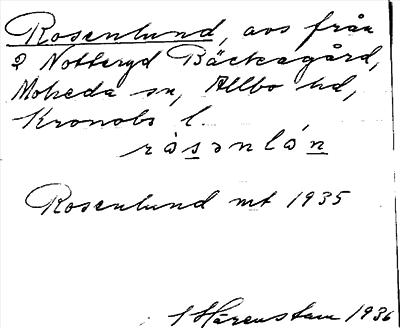 Rosenlund, avs från
2 Notteryd Bäckagård,
Moheda sn, Allbo hd,
Kronobs l.
ròsənlán
Rosenlund mt 1935
Härenstam 1936